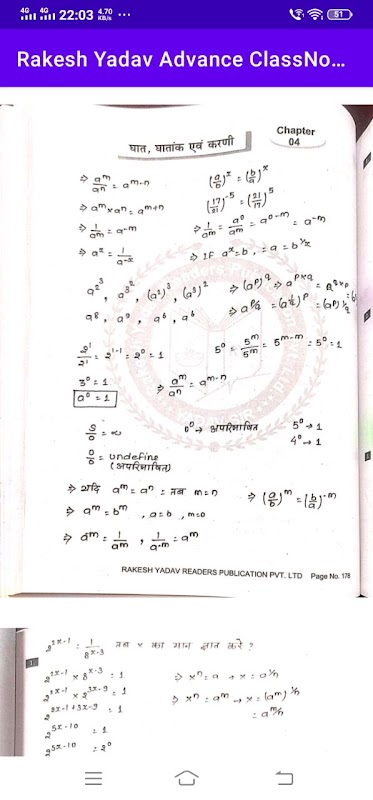 4G 4G 22:03 4.70 KB/s ... 51
Rakesh Yadav Advance ClassNo...
घात, घातांक एवं करणी
Chapter
04
⇒ a^m/a^n = a^(m-n)
(a/b)^x = (b/a)^x
⇒ a^m × a^n = a^(m+n)
(17/21)^-5 = (21/17)^5
⇒ 1/a^m = a^-m
⇒ 1/a^m = a^0/a^m = a^(0-m) = a^-m
⇒ a^x = 1/a^-x
⇒ If a^x = b, = a = b^(1/x)
a^2^3, a^3^2, (a^2)^3, (a^3)^2
⇒ (a^p)^q ⇒ a^(p×q) = a^(q×p)
a^8, a^9, a^6, a^6
2^1/2^1 = 2^(1-1) = 2^0 = 1
5^0 = 5^m/5^m = 5^(m-m) = 5^0 = 1
3^0 = 1
⇒ a^m/a^n = a^(m-n)
a^0 = 1
0^0 → अपरिभाषित
5^0 → 1
4^0 → 1
0/0 = undefine
(अपरिभाषित)
⇒ यदि a^m = a^n = तब m = n
⇒ (a/b)^m = (b/a)^-m
⇒ a^m = b^m , a = b , m = 0
RAKESH YADAV READERS PUBLICATION PVT. LTD Page No. 178
2^(2x-1) = 1/8^(x-3) तब x का मान ज्ञात करे ?
2^(2x-1) × 8^(x-3) = 1
⇒ x^n = a → x = a^(1/n)
2^(2x-1) × 2^(3x-9) = 1
⇒ x^n = a^m → x = (a^m)^(1/n)
= a^(m/n)
2^(2x-1+3x-9) = 1
2^(5x-10) = 1
2^(5x-10) = 2^0